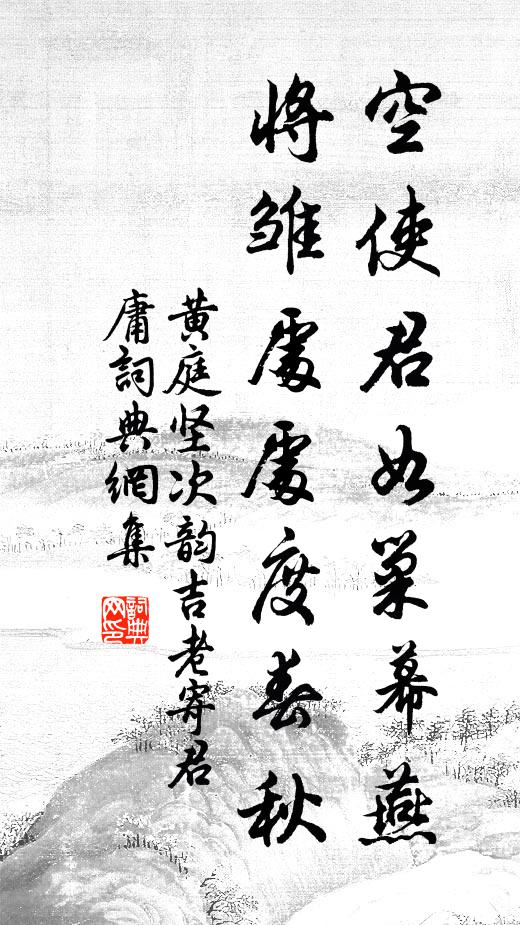 空使君如巢幕燕
將雏處處度春秋
黄庭坚次韵吉老寄君
庸詞典網集
詞典
网印